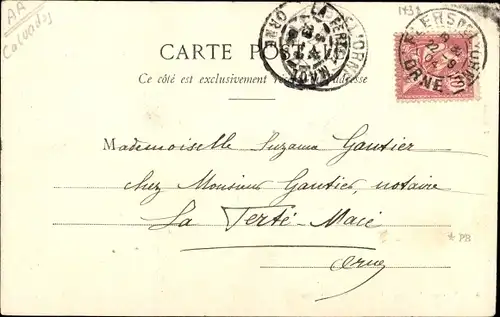 AR
Calvados
1432
CARTE POSTALE
Ce côté est exclusivement adresse
LA FERTÉ MACÉ
ORNE
FLERS
ORNE
Mademoiselle Suzana Gautier
chez Monsieur Gautier, notaire
La Ferté-Macé
Orne
* PB